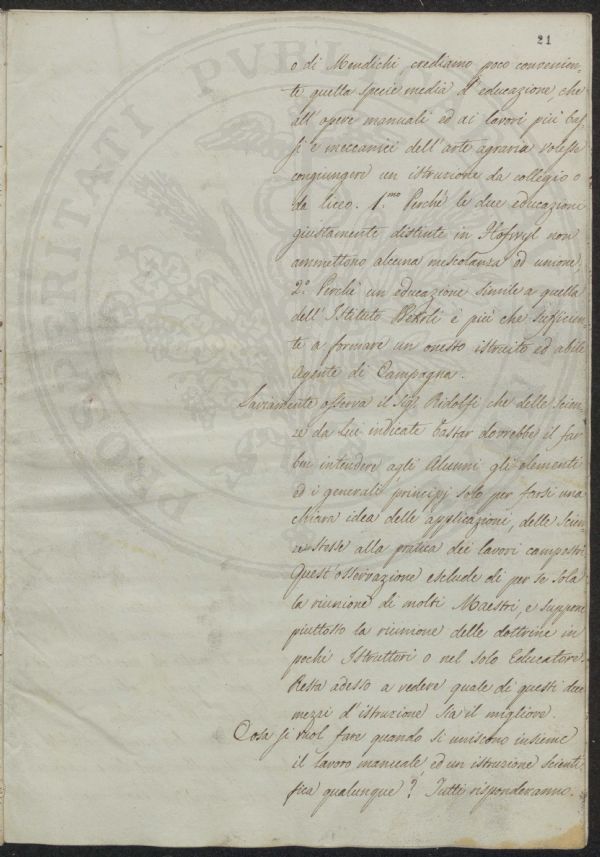 21
PROSPERITATI PVBLICAE
o di Mendichi crediamo poco convenien-
te quella specie media d'educazione, che
all'opere manuali ed ai lavori più bas-
si e meccanici dell'arte agraria volesse
congiungere un istruzione da collegio o
da liceo. 1.mo Perchè le due educazioni
giustamente distinte in Hofwyl non
ammettono alcuna mescolanza ed unione,
2.o Perchè un educazione simile a quella
dell'Istituto è più che sufficien-
te a formare un onesto istruito ed abile
Agente di Campagna.
Saviamente osserva il Sig. Ridolfi che delle Scien-
ze da Lui indicate bastar dovrebbe il far
ben intendere agli Alunni gli elementi
ed i generali principj solo per farsi una
chiara idea delle applicazioni, delle Scien-
ze stesse alla pratica dei lavori campestri
Quest'osservazione esclude di per se sola
la riunione di molti Maestri, e suppone
piuttosto la riunione delle dottrine in
pochi Istruttori o nel solo Educatore.
Resta adesso a vedere quale di questi due
mezzi d'istruzione sia il migliore.
Cosa si vuol fare quando si uniscono insieme
il lavoro manuale, ed un istruzione scienti-
fica qualunque? Tutti risponderanno.